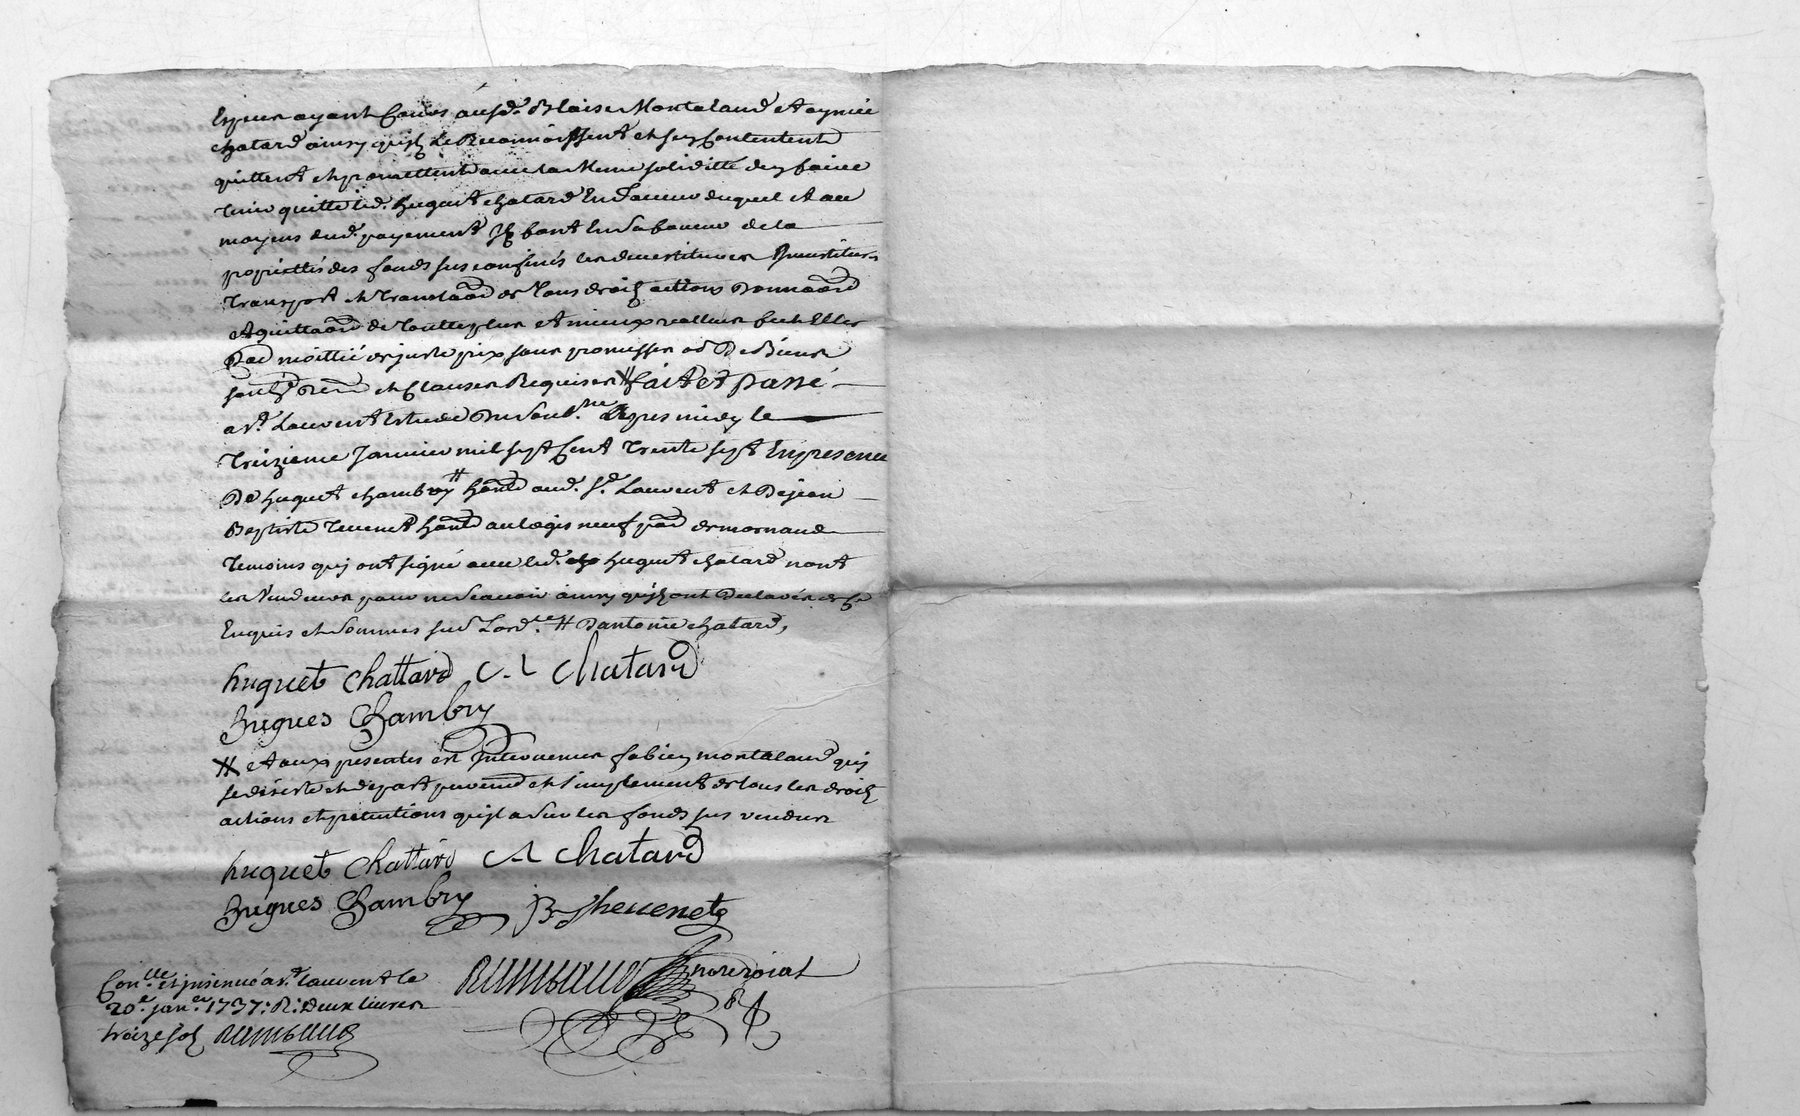 Especes ayant Cours ausd. Blaise Montaland et aymée
chatard ainsy quil le Reconnoissent et sen Contentent
quittent et promettent avec la Meme soliditté den faire
tenir quitte led. huguet chatard En faveur duquel et au
moyens dud. payement Jl sont En sa faveur de la
propriettés des fonds sus confinés les devestitures Jnvestitures
transport et translaaon de tous droits actions Donnaaon
et quittaaon de toutte plus et mieux vallue soit Elles
moittié de juste prix sous promesses obl De Biens
et Clauses Requises # fait et passé
a St. Laurent Estude Du soubsne. apres midy le
treizieme Janvier mil sept Cent trente sept En presence
De huguet chambry # habt aud. St. Laurent et De jean
Baptiste tevenet habt au logis neuf de mornand
temoins quj ont signé avec led. huguet chatard nont
les Vendeurs pour ne scavoir ainsy quil ont Declarés de ce
Enquis et sommés suiv Lordce. # Dantoine chatard,
huguet Chattard A chatard
hugues Chambry
# et aux presentes est Jntervenu fabien montaland quj
se desiste et depart purement et simplement de tous les droits
actions et pretentions quil a sur les fonds sus vendus
huguet Chattard A chatard
hugues Chambry JB thevenet
Conlle. et jnsinué a St. laurent le
20e. janer. 1737: R: deux livres
treize sols Rimbaud
Rimbaud nore roial